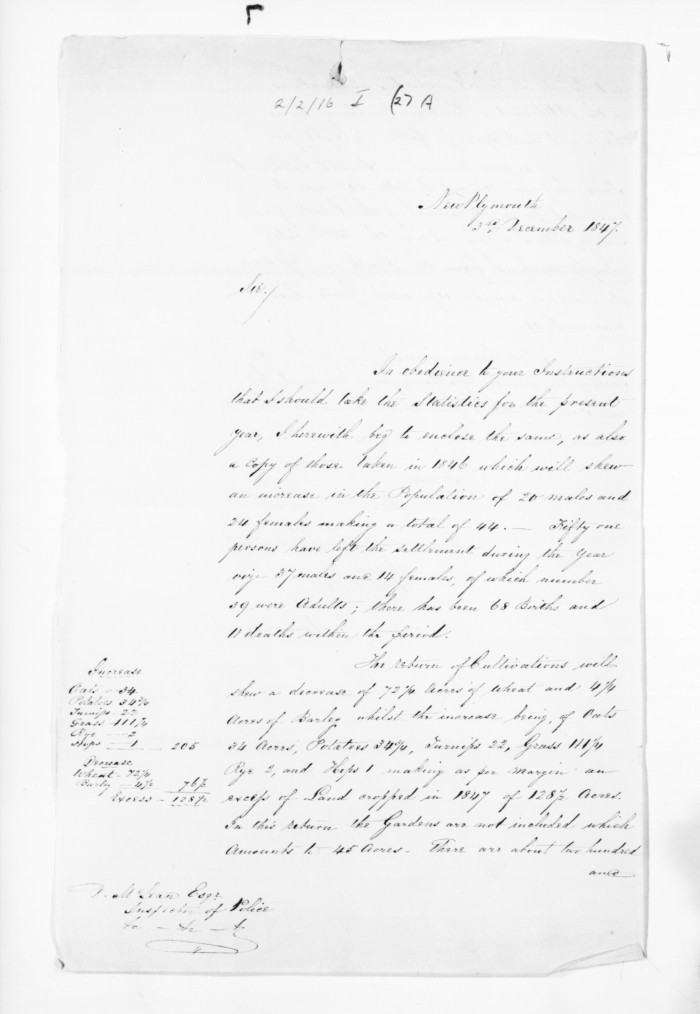 2/2/16 I (27 A
New Plymouth
3rd December 1847.
Sir,
In obedience to your Instructions
that I should take the Statistics for the present
year, I herewith beg to enclose the same, as also
a copy of those taken in 1846 which will shew
an increase in the Population of 20 males and
24 females making a total of 44. — Fifty one
persons have left the settlement during the year
viz 37 males and 14 females, of which number
29 were Adults; there has been 68 Births and
11 deaths within the period.
The return of Cultivations will
shew a decrease of 72¼ Acres of Wheat and 4¼
Acres of Barley whilst the increase being, of Oats
34 Acres, Potatoes 34¾, Turnips 22, Grass 111¼
Rye 2, and Hops 1 making as per margin an
excess of Land cropped in 1847 of 128½ Acres.
In this return the Gardens are not included which
Amounts to 45 Acres. There are about two hundred
and
Increase
Oats - 34
Potatoes 34¾
Turnips 22
Grass 111¼
Rye — 2
Hops — 1 — 205
Decrease
Wheat - 72¼
Barley 4¼ 76½
Excess - 128½
D. McLean Esqr
Inspector of Police
&c — &c — &c